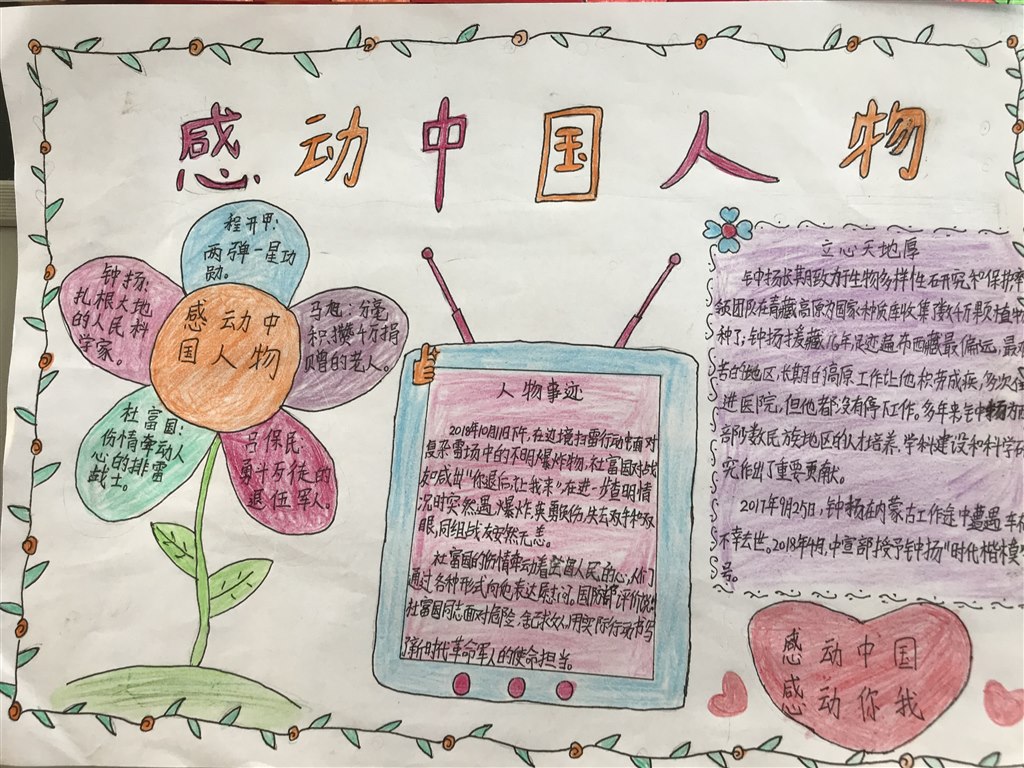 感动中国人物
程开甲:
两弹一星功
勋。
钟扬:
扎根大地
的人民科
学家。
感动中
国人物
马旭:分毫
积攒千万捐
赠的老人。
杜富国:
伤情牵动人
心的排雷
战士。
吕保民
勇斗歹徒的
退伍军人。
人物事迹
2018年10月11日下午,在边境扫雷行动中面对
复杂雷场中的不明爆炸物,杜富国对战
友喊出“你退后,让我来”,在进一步查明情
况时突然遇爆炸,英勇负伤,失去双手和双
眼,同组战友安然无恙。
杜富国的伤情牵动着全国人民的心,人们
通过各种形式向他表达慰问。国防部评价说:
杜富国同志面对危险,舍己救人,用实际行动书写
了新时代革命军人的使命担当。
立心天地厚
钟扬长期致力于生物多样性研究和保护率
领团队在青藏高原为国家种质库收集了数千万颗植物
种子;钟扬援藏
年足迹遍布西藏最偏远、最艰
苦的地区,长期的高原工作让他积劳成疾,多次住
进医院,但他都没有停下工作。多年来钟扬为西
部少数民族地区的人才培养、学科建设和科学研
究作出了重要贡献。
2017年9月25日,钟扬在内蒙古工作途中遭遇车祸
不幸去世。2018年4月,中宣部授予钟扬“时代楷模”
号。
感动中国
感动你我